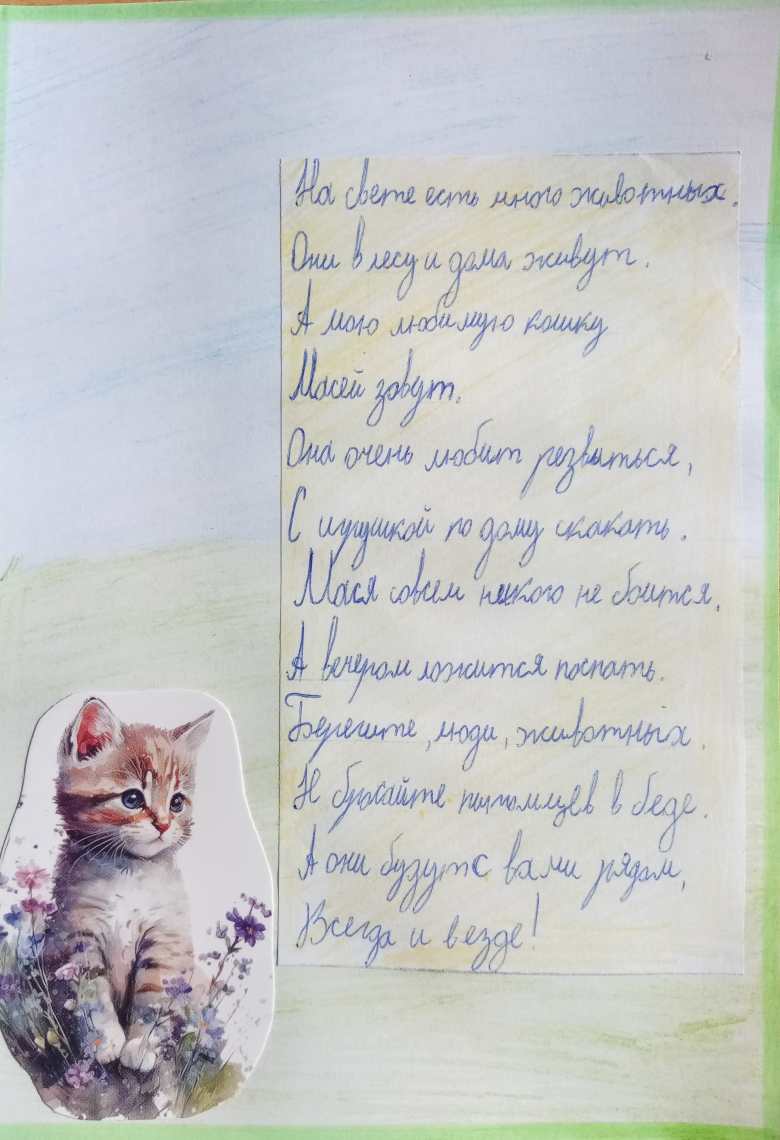 На свете есть много животных.
Они в лесу и дома живут.
А мою любимую кошку
Масей зовут.
Она очень любит резвиться,
С игрушкой по дому скакать.
Мася совсем никого не боится,
А вечером ложится поспать.
Берегите, люди, животных.
Не бросайте питомцев в беде.
А они будут с вами рядом,
Всегда и везде!